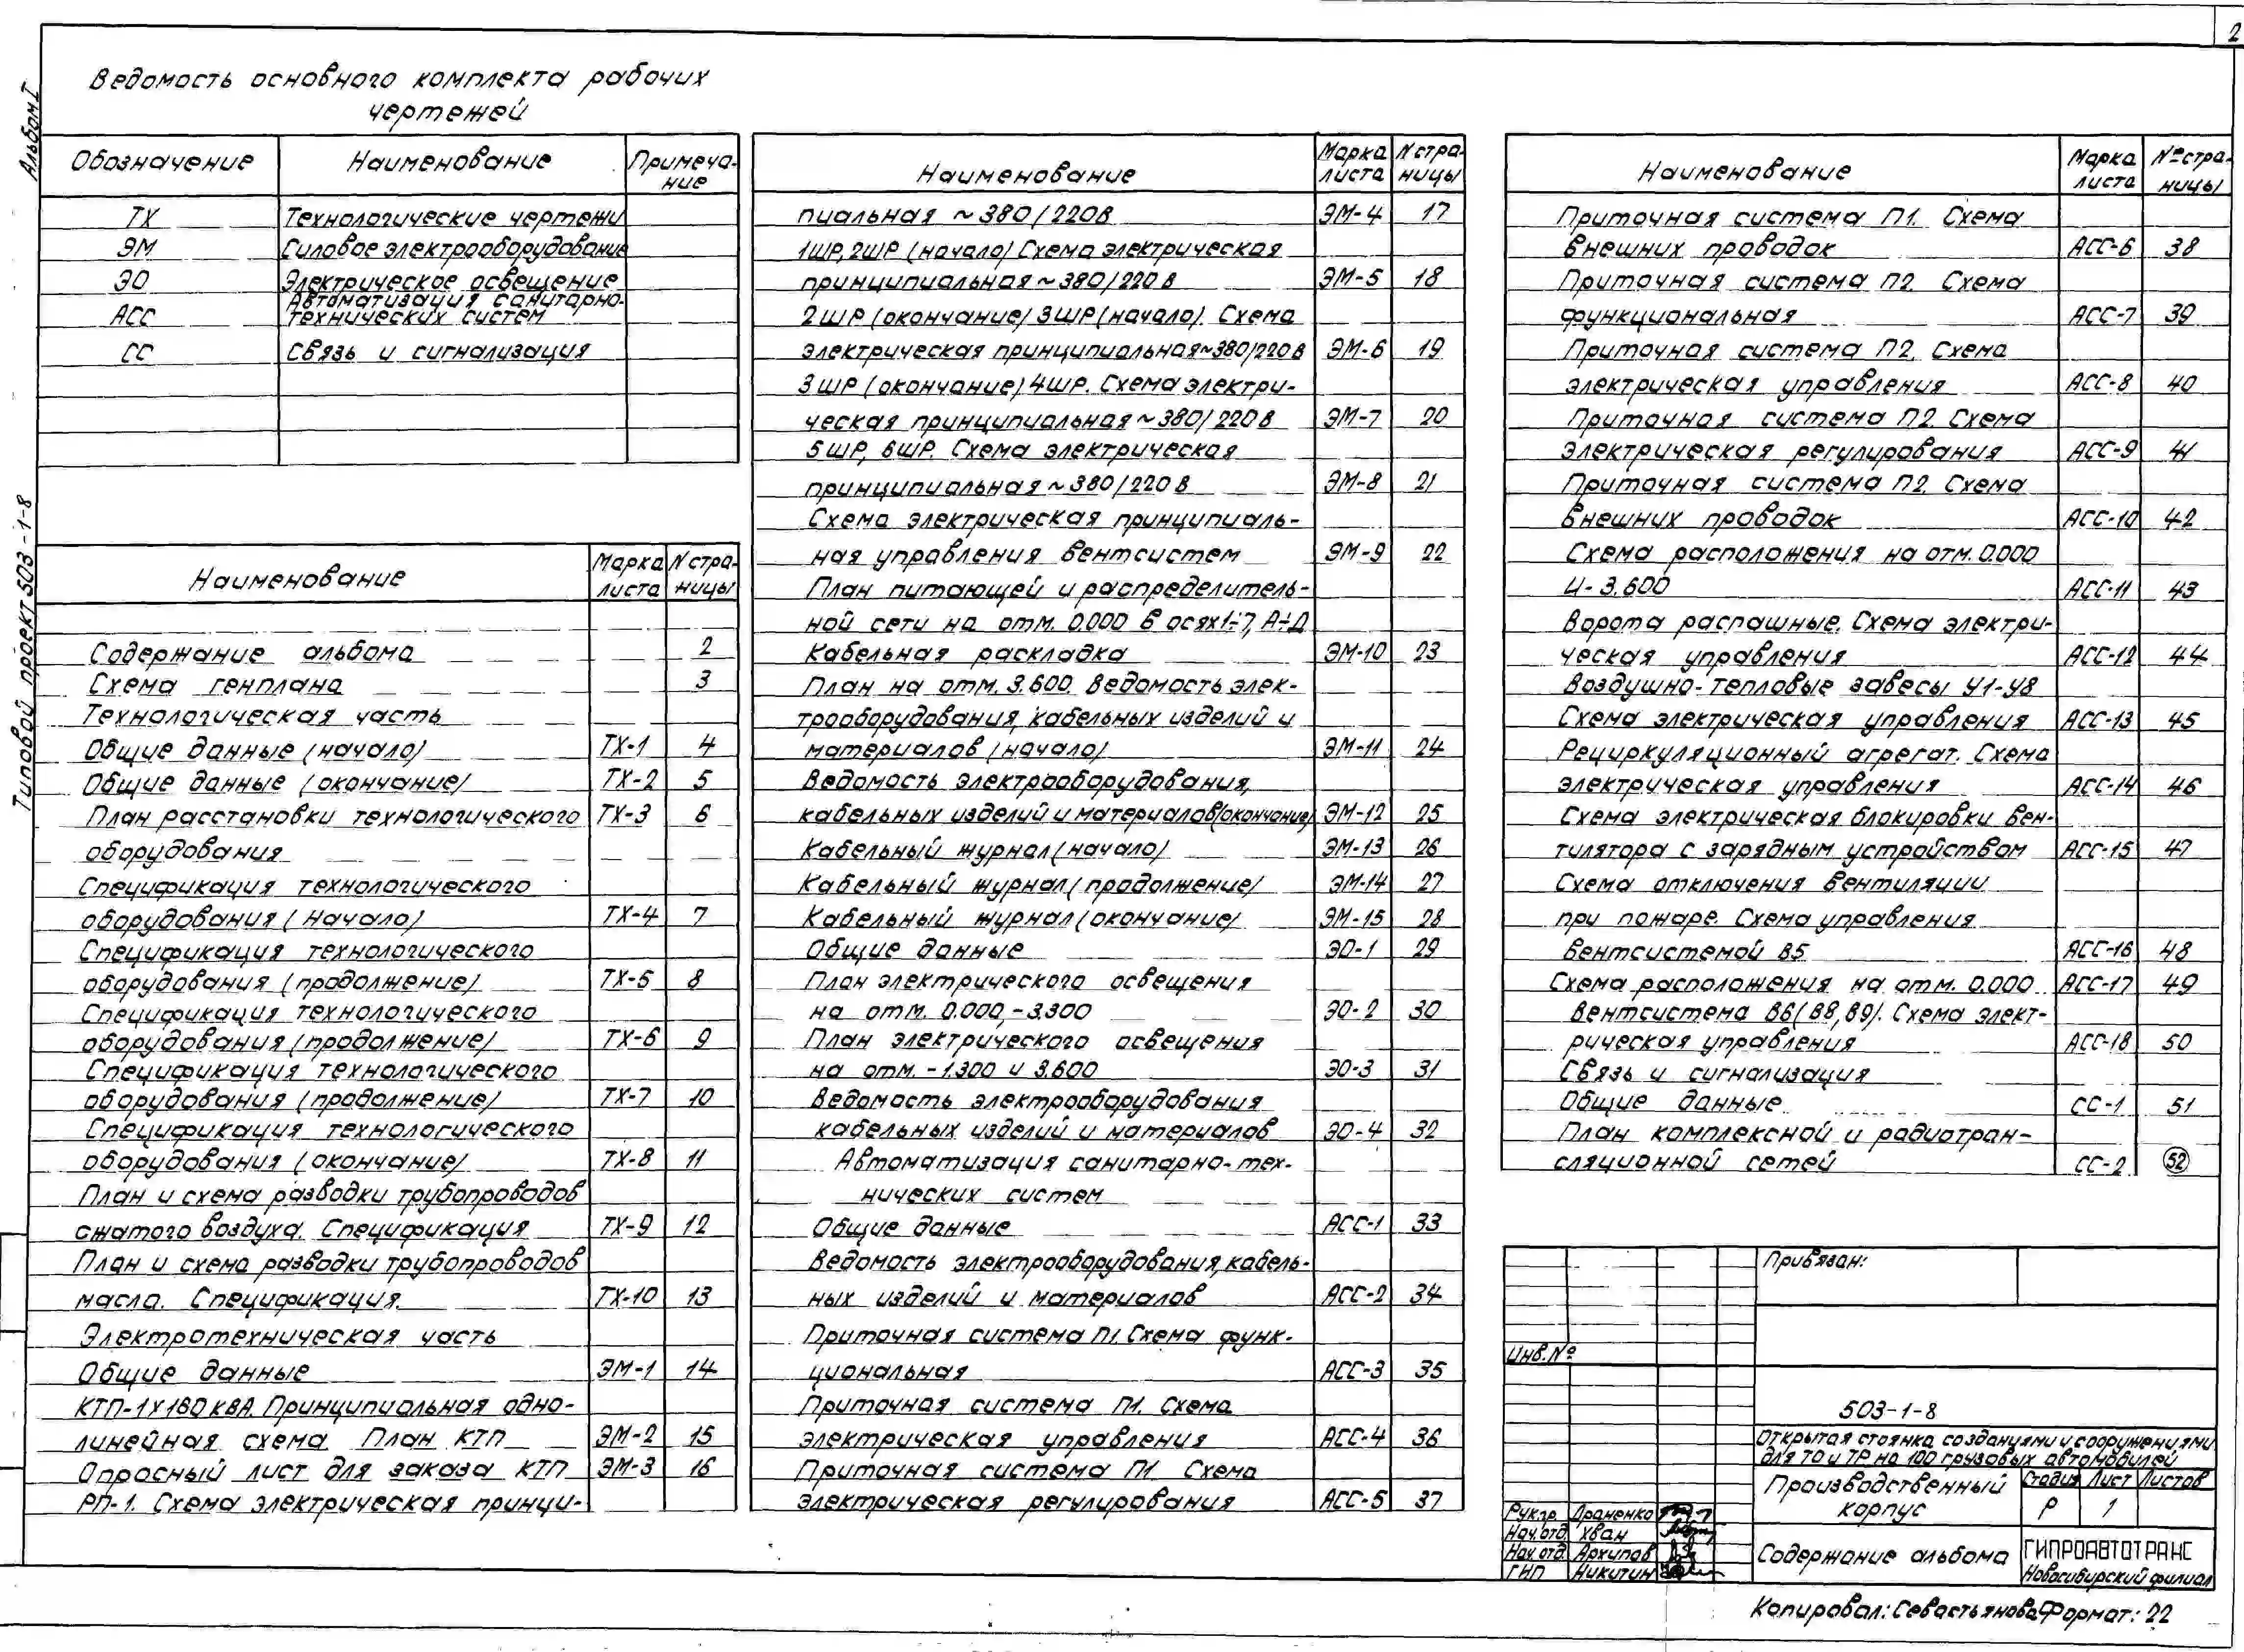 2
Альбом I
Типовой проект 503-1-8
Ведомость основного комплекта рабочих
чертежей
Обозначение Наименование Примеча-
ние
ТХ Технологические чертежи
ЭМ Силовое электрооборудование
ЭО Электрическое освещение
АСС Автоматизация санитарно-
технических систем
СС Связь и сигнализация
Наименование Марка листа N страницы
Содержание альбома 2
Схема генплана 3
Технологическая часть
Общие данные (начало) ТХ-1 4
Общие данные (окончание) ТХ-2 5
План расстановки технологического ТХ-3 6
оборудования
Спецификация технологического
оборудования (начало) ТХ-4 7
Спецификация технологического
оборудования (продолжение) ТХ-5 8
Спецификация технологического
оборудования (продолжение) ТХ-6 9
Спецификация технологического
оборудования (продолжение) ТХ-7 10
Спецификация технологического
оборудования (окончание) ТХ-8 11
План и схема разводки трубопроводов
сжатого воздуха. Спецификация ТХ-9 12
План и схема разводки трубопроводов
масла. Спецификация. ТХ-10 13
Электротехническая часть
Общие данные ЭМ-1 14
КТП-1х160 кВА. Принципиальная одно-
линейная схема План КТП ЭМ-2 15
Опросный лист для заказа КТП ЭМ-3 16
РП-1. Схема электрическая принци-
Наименование Марка листа N страницы
пиальная ~380/220в ЭМ-4 17
1ШР, 2ШР (начало) Схема электрическая
принципиальная ~380/220в ЭМ-5 18
2ШР (окончание) 3ШР (начало). Схема
электрическая принципиальная ~380/220в ЭМ-6 19
3ШР (окончание) 4ШР. Схема электри-
ческая принципиальная ~380/220в ЭМ-7 20
5ШР, 6ШР. Схема электрическая
принципиальная ~380/220в ЭМ-8 21
Схема электрическая принципиаль-
ная управления вентсистем ЭМ-9 22
План питающей и распределитель-
ной сети на отм. 0.000 в осях 1÷7, А÷Д
Кабельная раскладка ЭМ-10 23
План на отм. 3.600. Ведомость элек-
трооборудования, кабельных изделий и
материалов (начало) ЭМ-11 24
Ведомость электрооборудования,
кабельных изделий и материалов (окончание) ЭМ-12 25
Кабельный журнал (начало) ЭМ-13 26
Кабельный журнал (продолжение) ЭМ-14 27
Кабельный журнал (окончание) ЭМ-15 28
Общие данные ЭО-1 29
План электрического освещения
на отм. 0.000, -3.300 ЭО-2 30
План электрического освещения
на отм. -1.300 и 3.600 ЭО-3 31
Ведомость электрооборудования
кабельных изделий и материалов ЭО-4 32
Автоматизация санитарно-тех-
нических систем
Общие данные АСС-1 33
Ведомость электрооборудования, кабель-
ных изделий и материалов АСС-2 34
Приточная система П1. Схема функ-
циональная АСС-3 35
Приточная система П1. Схема
электрическая управления АСС-4 36
Приточная система П1 Схема
электрическая регулирования АСС-5 37
Наименование Марка листа № страницы
Приточная система П1. Схема
внешних проводок АСС-6 38
Приточная система П2. Схема
функциональная АСС-7 39
Приточная система П2. Схема
электрическая управления АСС-8 40
Приточная система П2. Схема
электрическая регулирования АСС-9 41
Приточная система П2. Схема
внешних проводок АСС-10 42
Схема расположения на отм. 0.000
и -3.600 АСС-11 43
Ворота распашные. Схема электри-
ческая управления АСС-12 44
Воздушно-тепловые завесы У1-У8
Схема электрическая управления АСС-13 45
Рециркуляционный агрегат. Схема
электрическая управления АСС-14 46
Схема электрическая блокировки вен-
тилятора с зарядным устройством АСС-15 47
Схема отключения вентиляции
при пожаре. Схема управления
вентсистемой В5 АСС-16 48
Схема расположения на отм. 0.000 АСС-17 49
Вентсистема В6 (В8, В9). Схема элект-
рическая управления АСС-18 50
Связь и сигнализация
Общие данные СС-1 51
План комплексной и радиотран-
сляционной сетей СС-2 52
Привязан:
Инв. №
503-1-8
Открытая стоянка со зданиями и сооружениями
для ТО и ТР на 100 грузовых автомобилей
Производственный
корпус
Стадия Лист Листов
Р 1
Рук.гр. Драненко
Нач.отд. Хван
Нач.отд. Архипов
ГИП Никитин
Содержание альбома
ГИПРОАВТОТРАНС
Новосибирский филиал
Копировал: Севастьянова Формат: 22